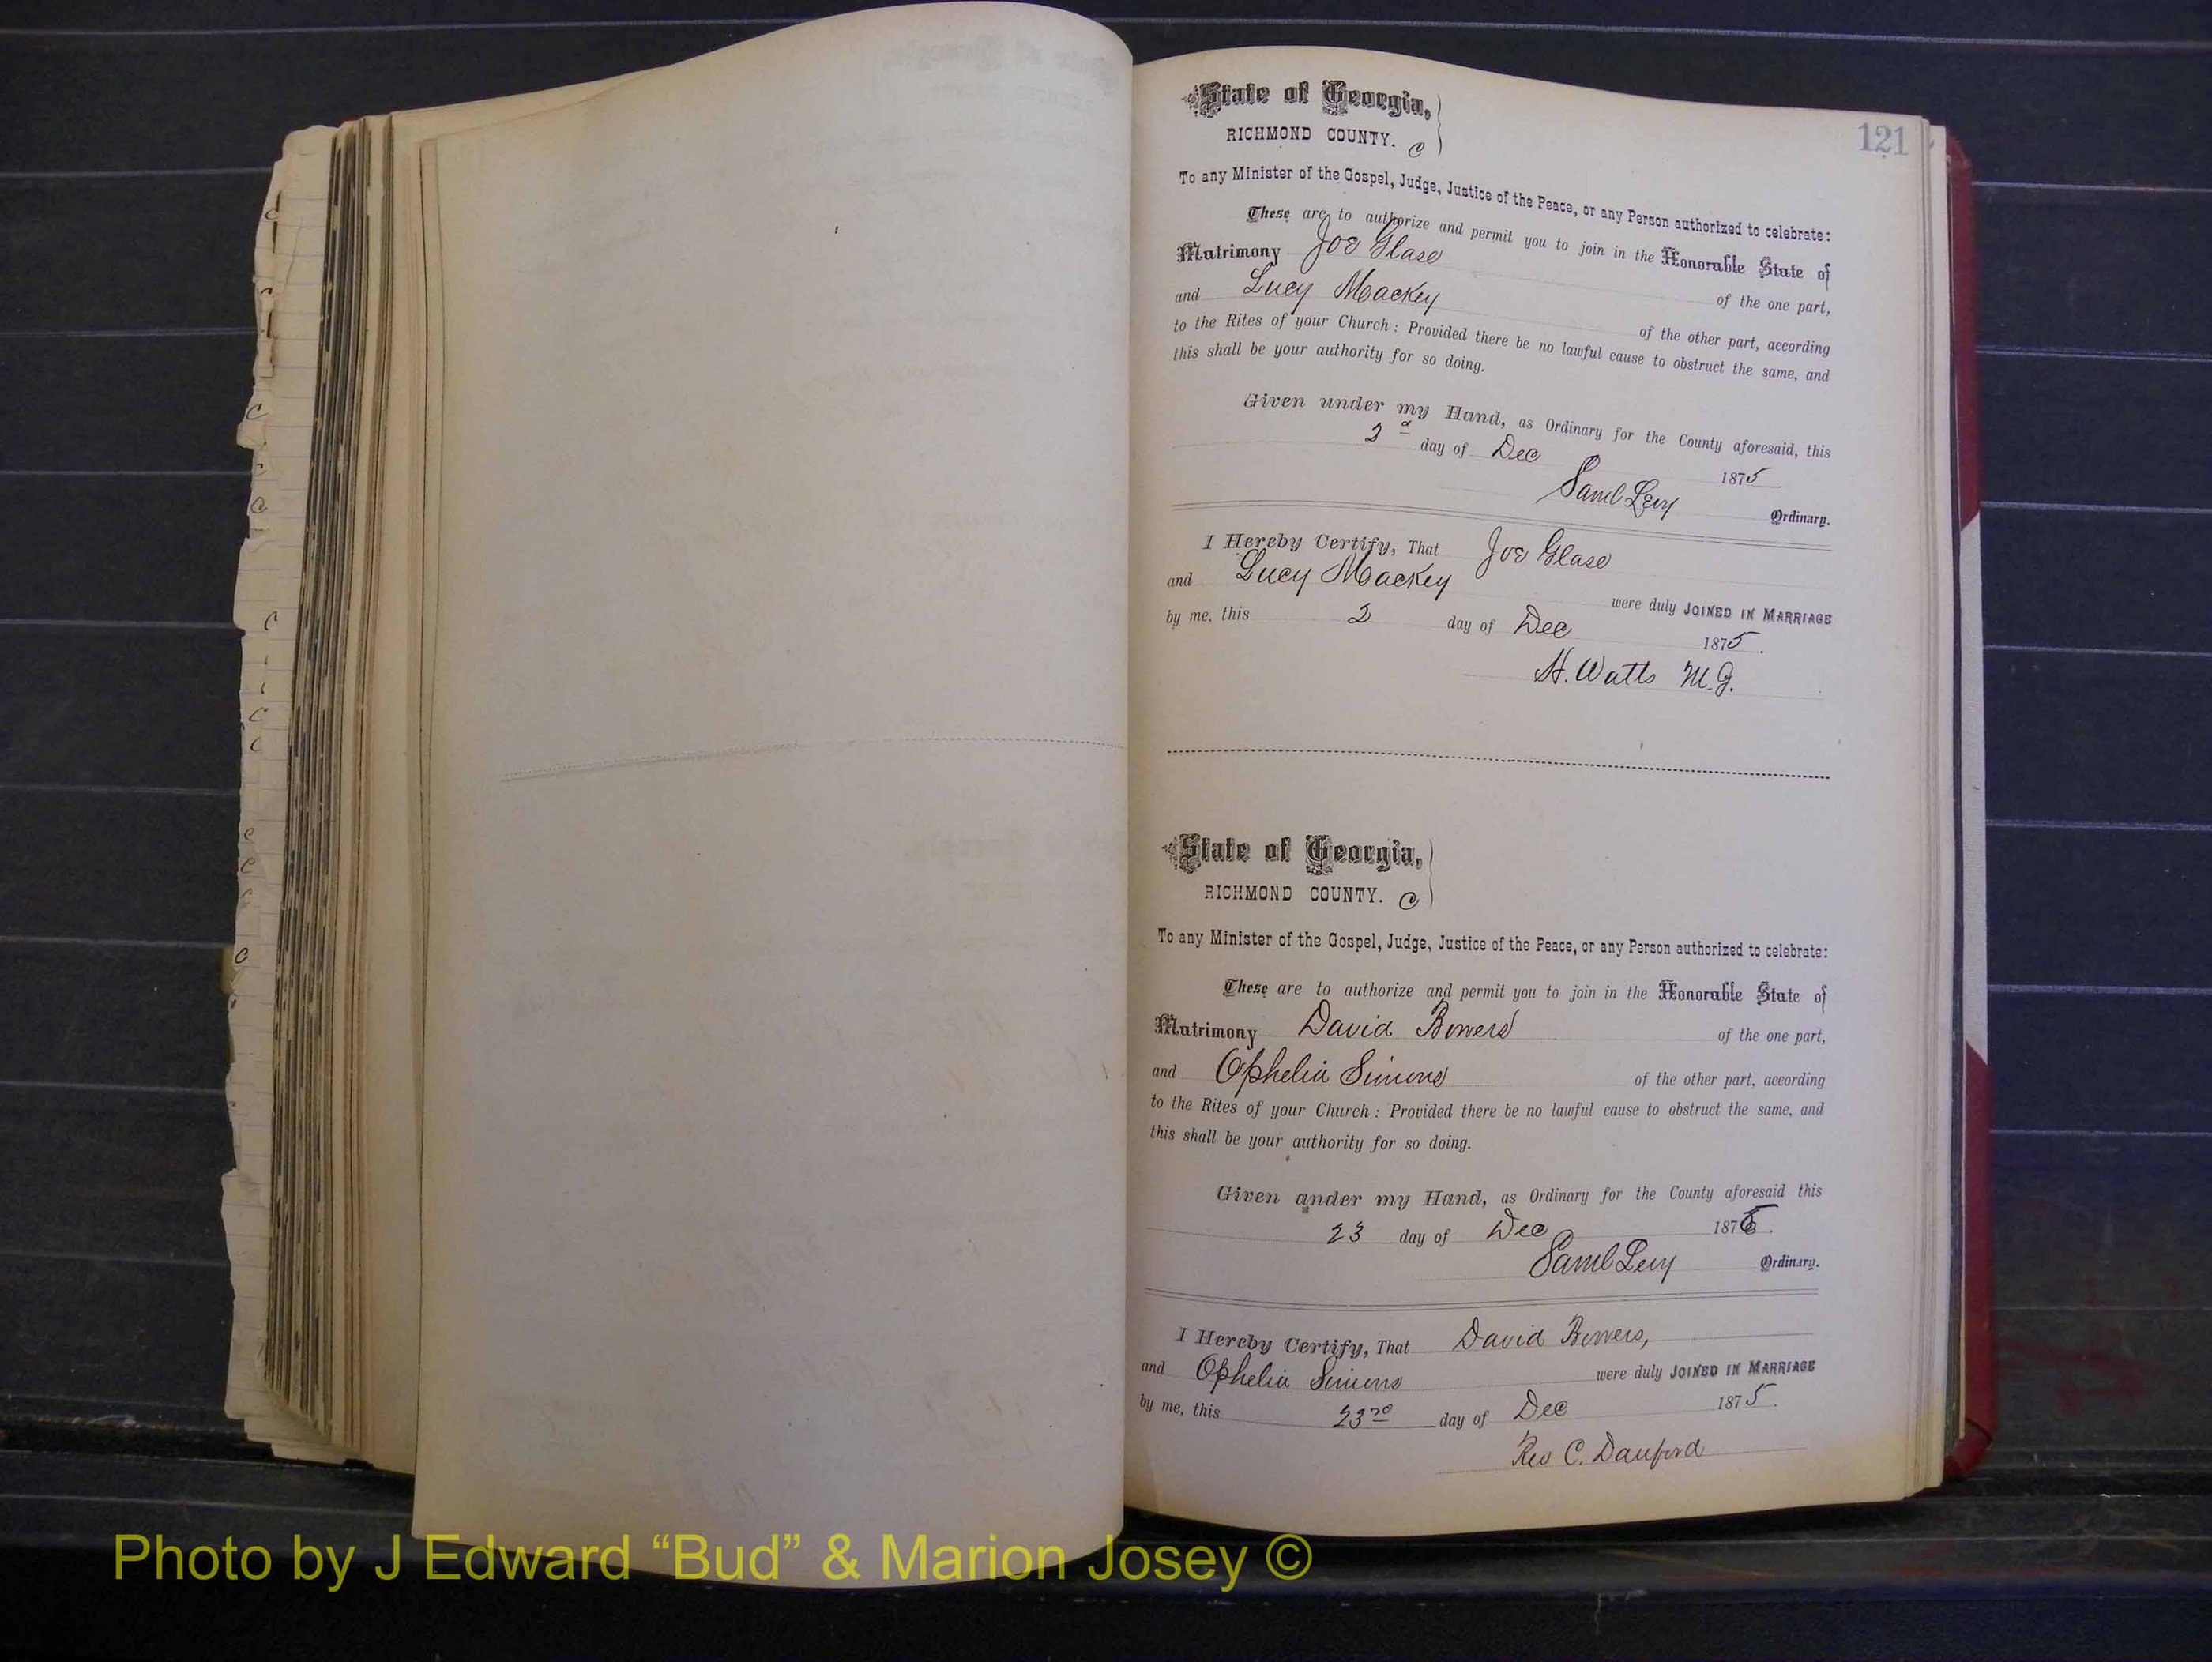 121
State of Georgia,
RICHMOND COUNTY. C
To any Minister of the Gospel, Judge, Justice of the Peace, or any Person authorized to celebrate:
These are to authorize and permit you to join in the Honorable State of
Matrimony Joe Glase of the one part,
and Lucy Mackey of the other part, according
to the Rites of your Church: Provided there be no lawful cause to obstruct the same, and
this shall be your authority for so doing.
Given under my Hand, as Ordinary for the County aforesaid, this
2d day of Dec 1875
Saml Levy Ordinary.
I Hereby Certify, That Joe Glase
and Lucy Mackey were duly JOINED IN MARRIAGE
by me, this 2 day of Dec 1875.
H. Watts M.G.
State of Georgia,
RICHMOND COUNTY. C
To any Minister of the Gospel, Judge, Justice of the Peace, or any Person authorized to celebrate:
These are to authorize and permit you to join in the Honorable State of
Matrimony David Bowers of the one part,
and Ophelia Simons of the other part, according
to the Rites of your Church: Provided there be no lawful cause to obstruct the same, and
this shall be your authority for so doing.
Given ander my Hand, as Ordinary for the County aforesaid this
23 day of Dec 1875.
Saml Levy Ordinary.
I Hereby Certify, That David Bowers,
and Ophelia Simons were duly JOINED IN MARRIAGE
by me, this 23rd day of Dec 1875.
Rev C. Danford
Photo by J Edward “Bud” & Marion Josey ©